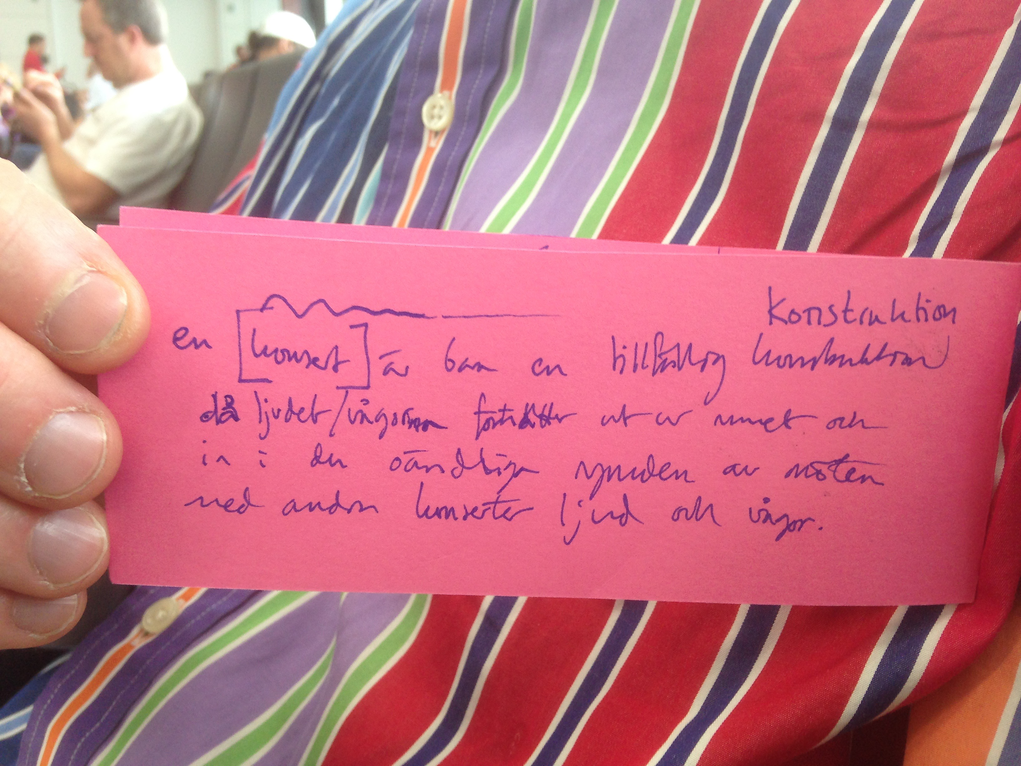 Konstruktion
en [konsert] är bara en tillfällig konstruktion
då ljudet/vågorna fortsätter ut ur rummet och
in i den oändliga rymden av möten
med andra konserter ljud och vågor.